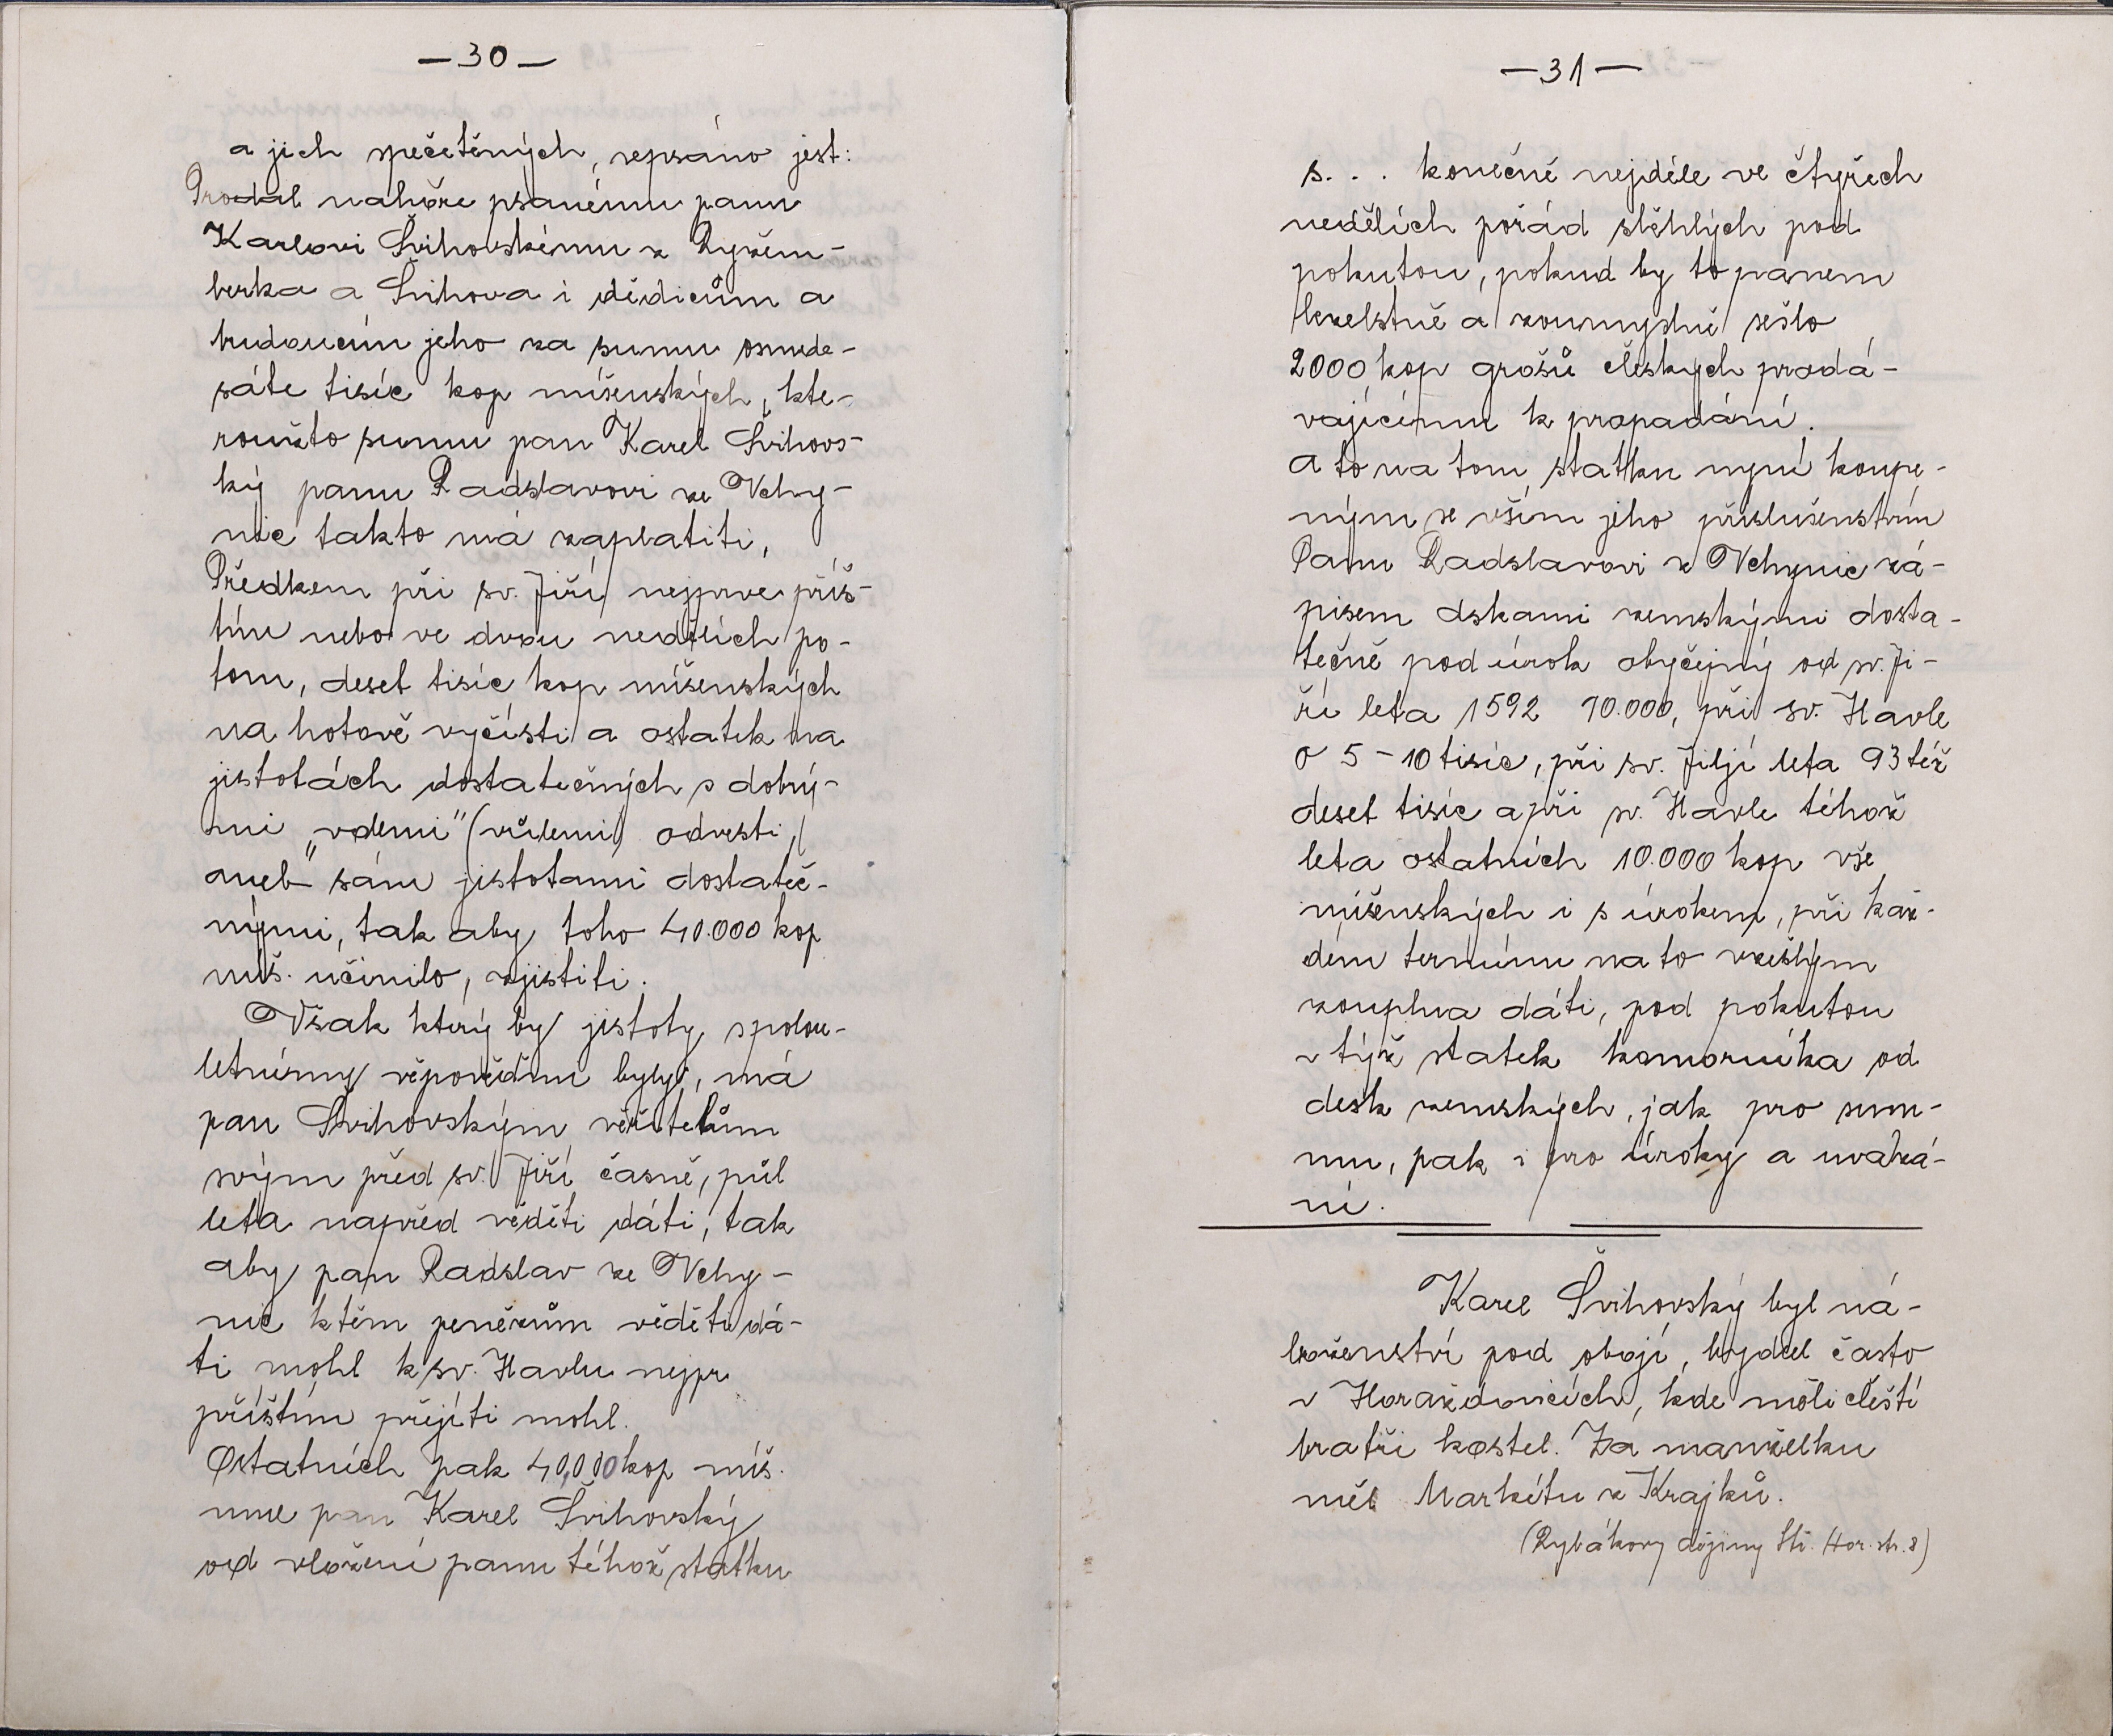 —30—
a jich spečetěných, sepsáno jest:
Prodal nahoře psanému panu
Karlovi Švihovskému z Ryzem-
berka a Švihova i dědicům a
budoucím jeho za sumu osmde-
sáte tisíc kop míšenských, kte-
roužto sumu pan Karel Švihovs-
ký panu Radslavovi ze Vchy-
nic takto má zaplatiti,
Předkem při sv. Jiří nejprve příš-
tím nebo ve dvou nedělích po-
tom, deset tisíc kop míšenských
na hotově vyčísti a ostatek na
jistotách dostatečných s dobrý-
mi „volemi" (vůlemi) odvesti,
aneb sám jistotami dostateč-
nými, tak aby toho 40.000 kop
míš. učinilo, zjistiti.
Však který by jistoty spolou-
letnímy byly, má
pan Švihovským věřitelům
svým před sv. Jiří časně, půl
leta napřed věděti dáti, tak
aby pan Radslav ze Vchy-
nic k těm penězům věděti dá-
ti mohl k sv. Havlu nejpr.
příštím přijíti mohl.
Ostatních pak 40,000 kop míš.
ume pan Karel Švihovský
od vložení panu téhož statku
—31—
s... konečně nejdéle ve čtyřech
nedělích pořád sběhlých pod
pokutou, pokud by to panem
bezelstně a zoumyslně sešlo
2000 kop grošů českých prodá-
vajícímu k propadání.
a to na tom statku nyní koupe-
ným se vším jeho příslušenstvím
Panu Radslavovi z Vchynic zá-
pisem dskami zemskými dosta-
tečně pod úrok obyčejný od sv. Ji-
ří leta 1592 10.000, při sv. Havle
o 5-10 tisíc, při sv. Jiljí leta 93 též
deset tisíc a při sv. Havle téhož
leta ostatních 10.000 kop vše
míšenských i s úrokem, při kaž-
dém termínu na to vzešlým
zouplna dáti, pod pokutou
v týž statek komorníka od
desk zemských, jak pro sum-
mu, pak i pro úroky a uvázá-
ní.
Karel Švihovský byl ná-
boženství pod obojí, bydlel často
v Horažďovicích, kde měli čeští
bratři kostel. Za manželku
měl Markétu z Krajků.
(Rybákovy dějiny Stř. Hor. str. 8)